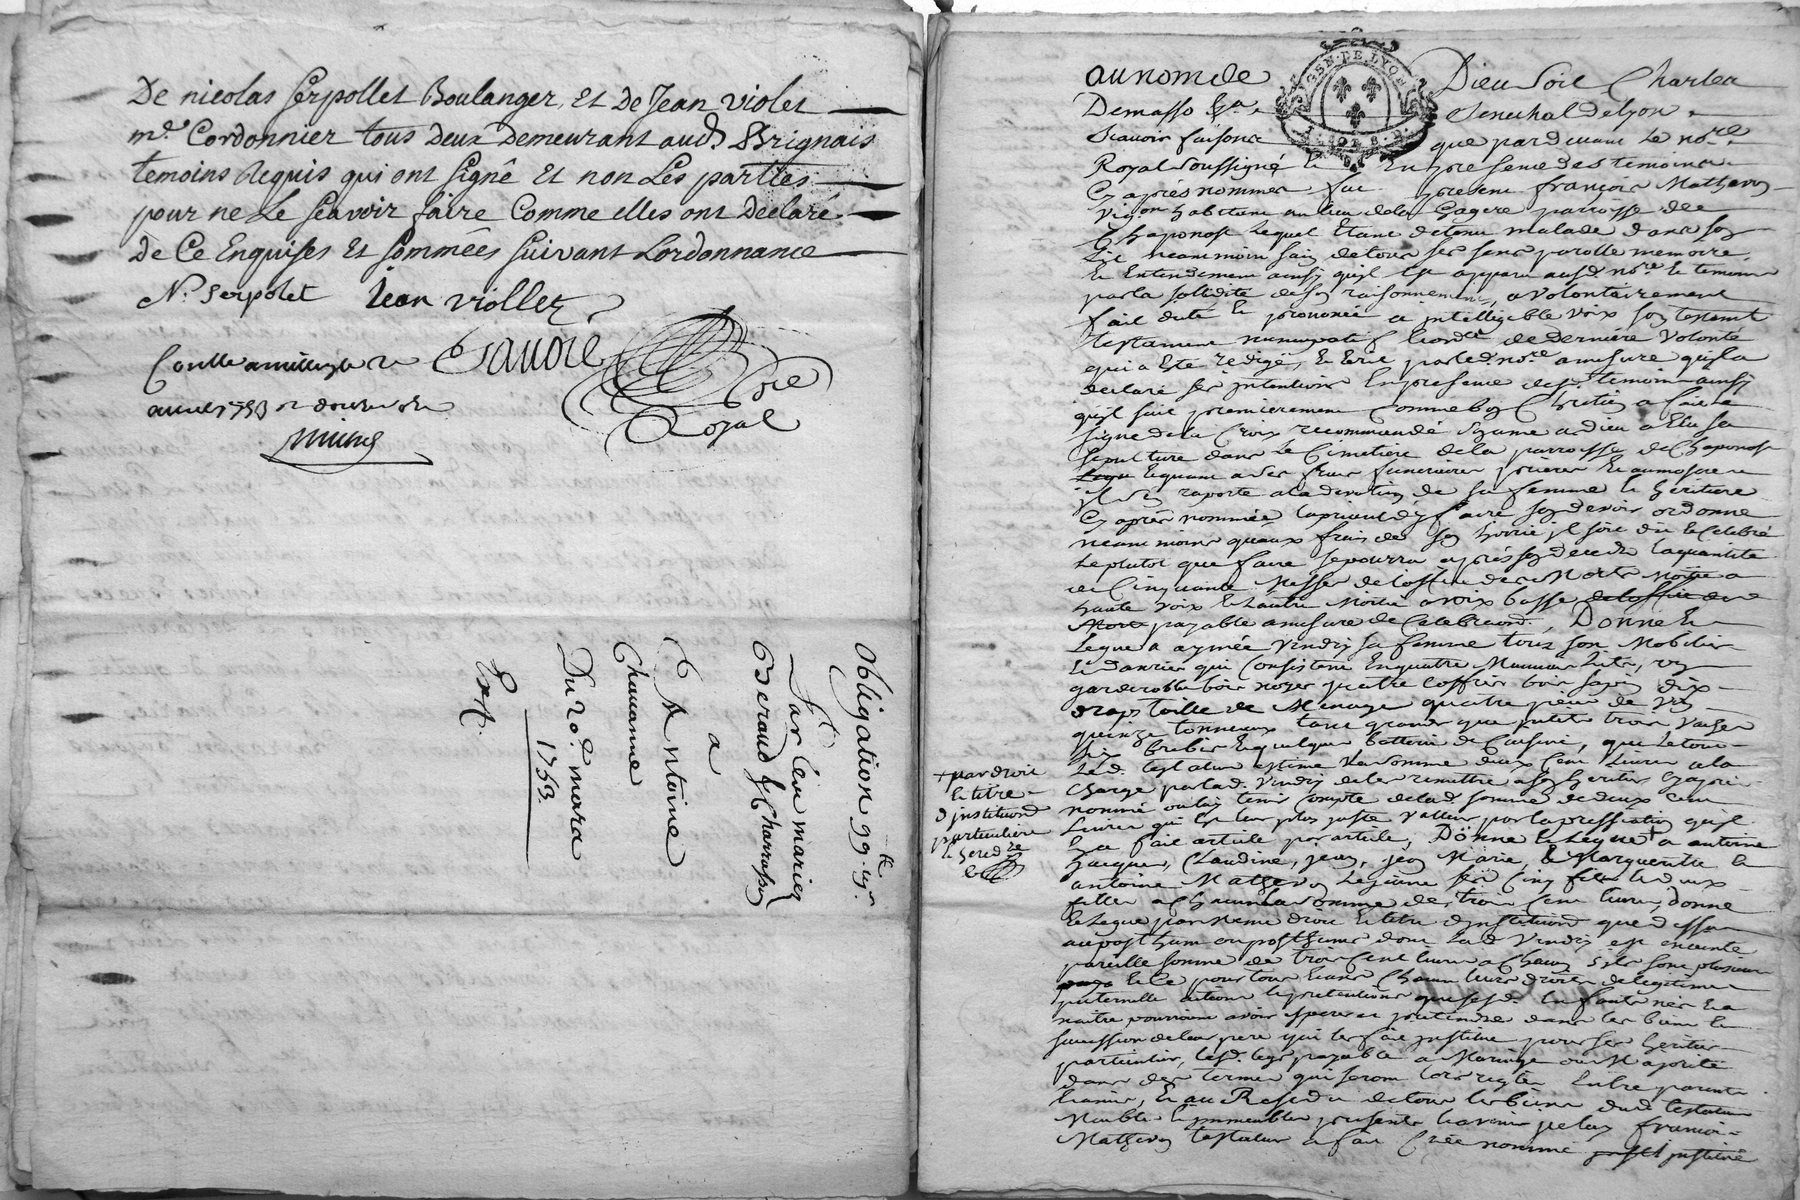 De nicolas Serpollet Boulanger, Et de Jean violet
me. Cordonnier tous deux Demeurant aud. Brignais
temoins Requis qui ont Signé Et non Les parties
pour ne Le Scavoir faire Comme elles ont Declaré
de Ce Enquises Et Sommées Suivant Lordonnance
N. Serpolet Jean viollet
avril 1753
Royal
Obligation 99
Par
a
Antoine
Chavanne
Du 20e. mars
1753.
Exp.
GEN. DE LYON
au nom de Dieu Soit Charles
Demasso Senechal de lyon
Scavoir faisons que pardevant Le nore.
Royal Soussigné Et En presence des temoins
Cy apres nommes fut present françois Mathevon
Vigon habitant au lieu de la Gagere parroisse de
Chaponost Lequel Etant detenu malade dans son
Lit neanmoins sain de tous ses sens parolle memoire
Et Entendement ainsy quil Est apparu aud. nore. Et temoins
par la solidité de son raisonnement, a volontairement
fait dicté Et prononcé a intelligible voix son
testament nuncupatif Et ordce. de derniere volonté
qui a Eté redigé En Ecrit par led. nore. a mesure quil a
declaré ses intentions En presence desd. temoins ainsy
quil suit premierement Comme bon Chretien a fait le
signe de la Croix recommandé son ame a dieu a Elu sa
sepulture dans Le Cimetiere de la parroisse de Chaponost
Et quant a ses frais funeraires prieres Et aumosnes
il s'en raporte a la devotion de sa femme Et heritiere
Cy apres nommée la priant dy faire son devoir ordonne
neanmoins quaux frais de son hoirie il soit dit Et Celebré
Le plutot que faire se pourra apres son deces la quantité
de Cinquante Messes de Loffice des Morts Moitie a
haute voix Et Lautre Moitie a voix basse
payable a mesure de Celebraon. Donne Et
Legue a aymée Vindry sa femme tous son Mobilier
Et danrées qui Consistent En quatre Mauvais Lits, un
garderobe bois noyer quatre Coffres bois sapin dix
draps toille de Menage quatre pieces de Vin
quinze tonneaux tant grands que petits trois Vaches
six brebis Et quelque batterie de Cuisine, que Le tout
Led. testateur estime La somme deux Cent Livres a la
Charge par lad. Vindry de les remettre a son heritier Cy apres
nommé ou luy tenir Compte de lad. somme de deux Cent
Livres qui Est leur plus juste valleur par lapreciation quil
En a fait article par article, Donne Et Legue + a antoine
Jacques, Claudine, jean, jean Marie, Et Marguerite Et
antoine Mathevon Lejeune ses Cinq fils Et deux
filles a Chacun La somme de trois Cent livres, donne
Et Legue par meme droit Et titre dinstitution que dessus
au posthume ou posthumes dont Lad. Vindry est enceinte
pareille somme de trois Cent livres a Chacun sils sont plusieurs
Et Ce pour tous Leurs Chacun leurs droits de legitime
paternelle actions Et pretentions que sesd. Enfants nés Et a
naitre pourroient avoir esperer et pretendre dans les biens Et
succession de leur pere qui les fait institue pour ses heritiers
particuliers, lesd. legs payable a Mariage ou Majorité
dans des termes qui seront lors reglés Entre parents
Et amis, Et au Residu de tous les biens dud. testateur
Meubles Et immeubles presents Et avenir Icelluy françois
Mathevon testateur a fait Créé nommé institué
+ par droit
Et titre
dinstitution
particuliere